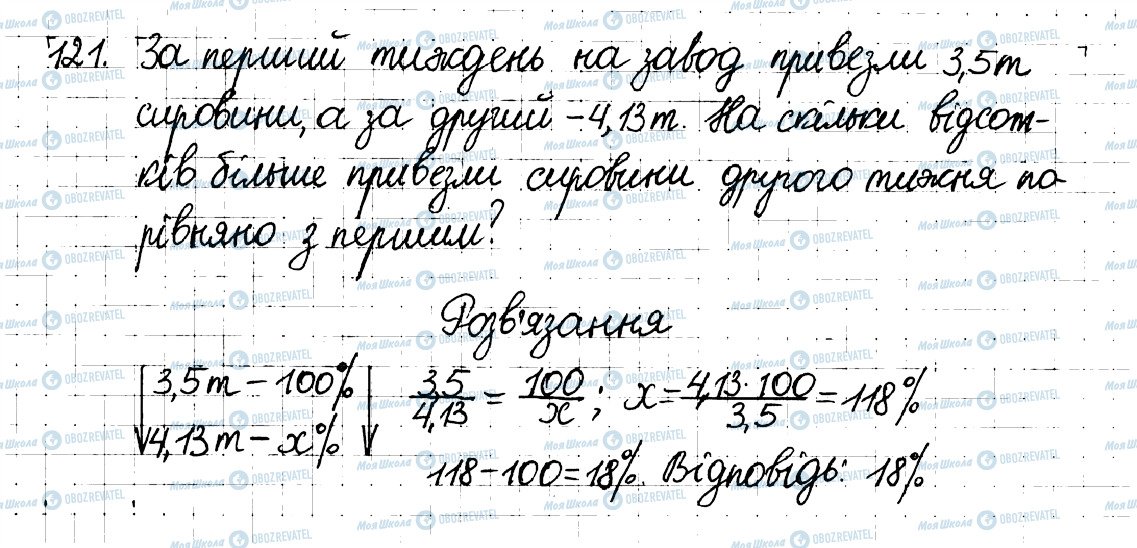 121. За перший тиждень на завод привезли 3,5т
сировини, а за другий – 4,13т. На скільки відсот-
ків більше привезли сировини другого тижня по-
рівняно з першим?
Розв'язання
3,5т – 100%
4,13т – x%
3,5/4,13 = 100/x; x = 4,13·100/3,5 = 118%
118 – 100 = 18%. Відповідь: 18%